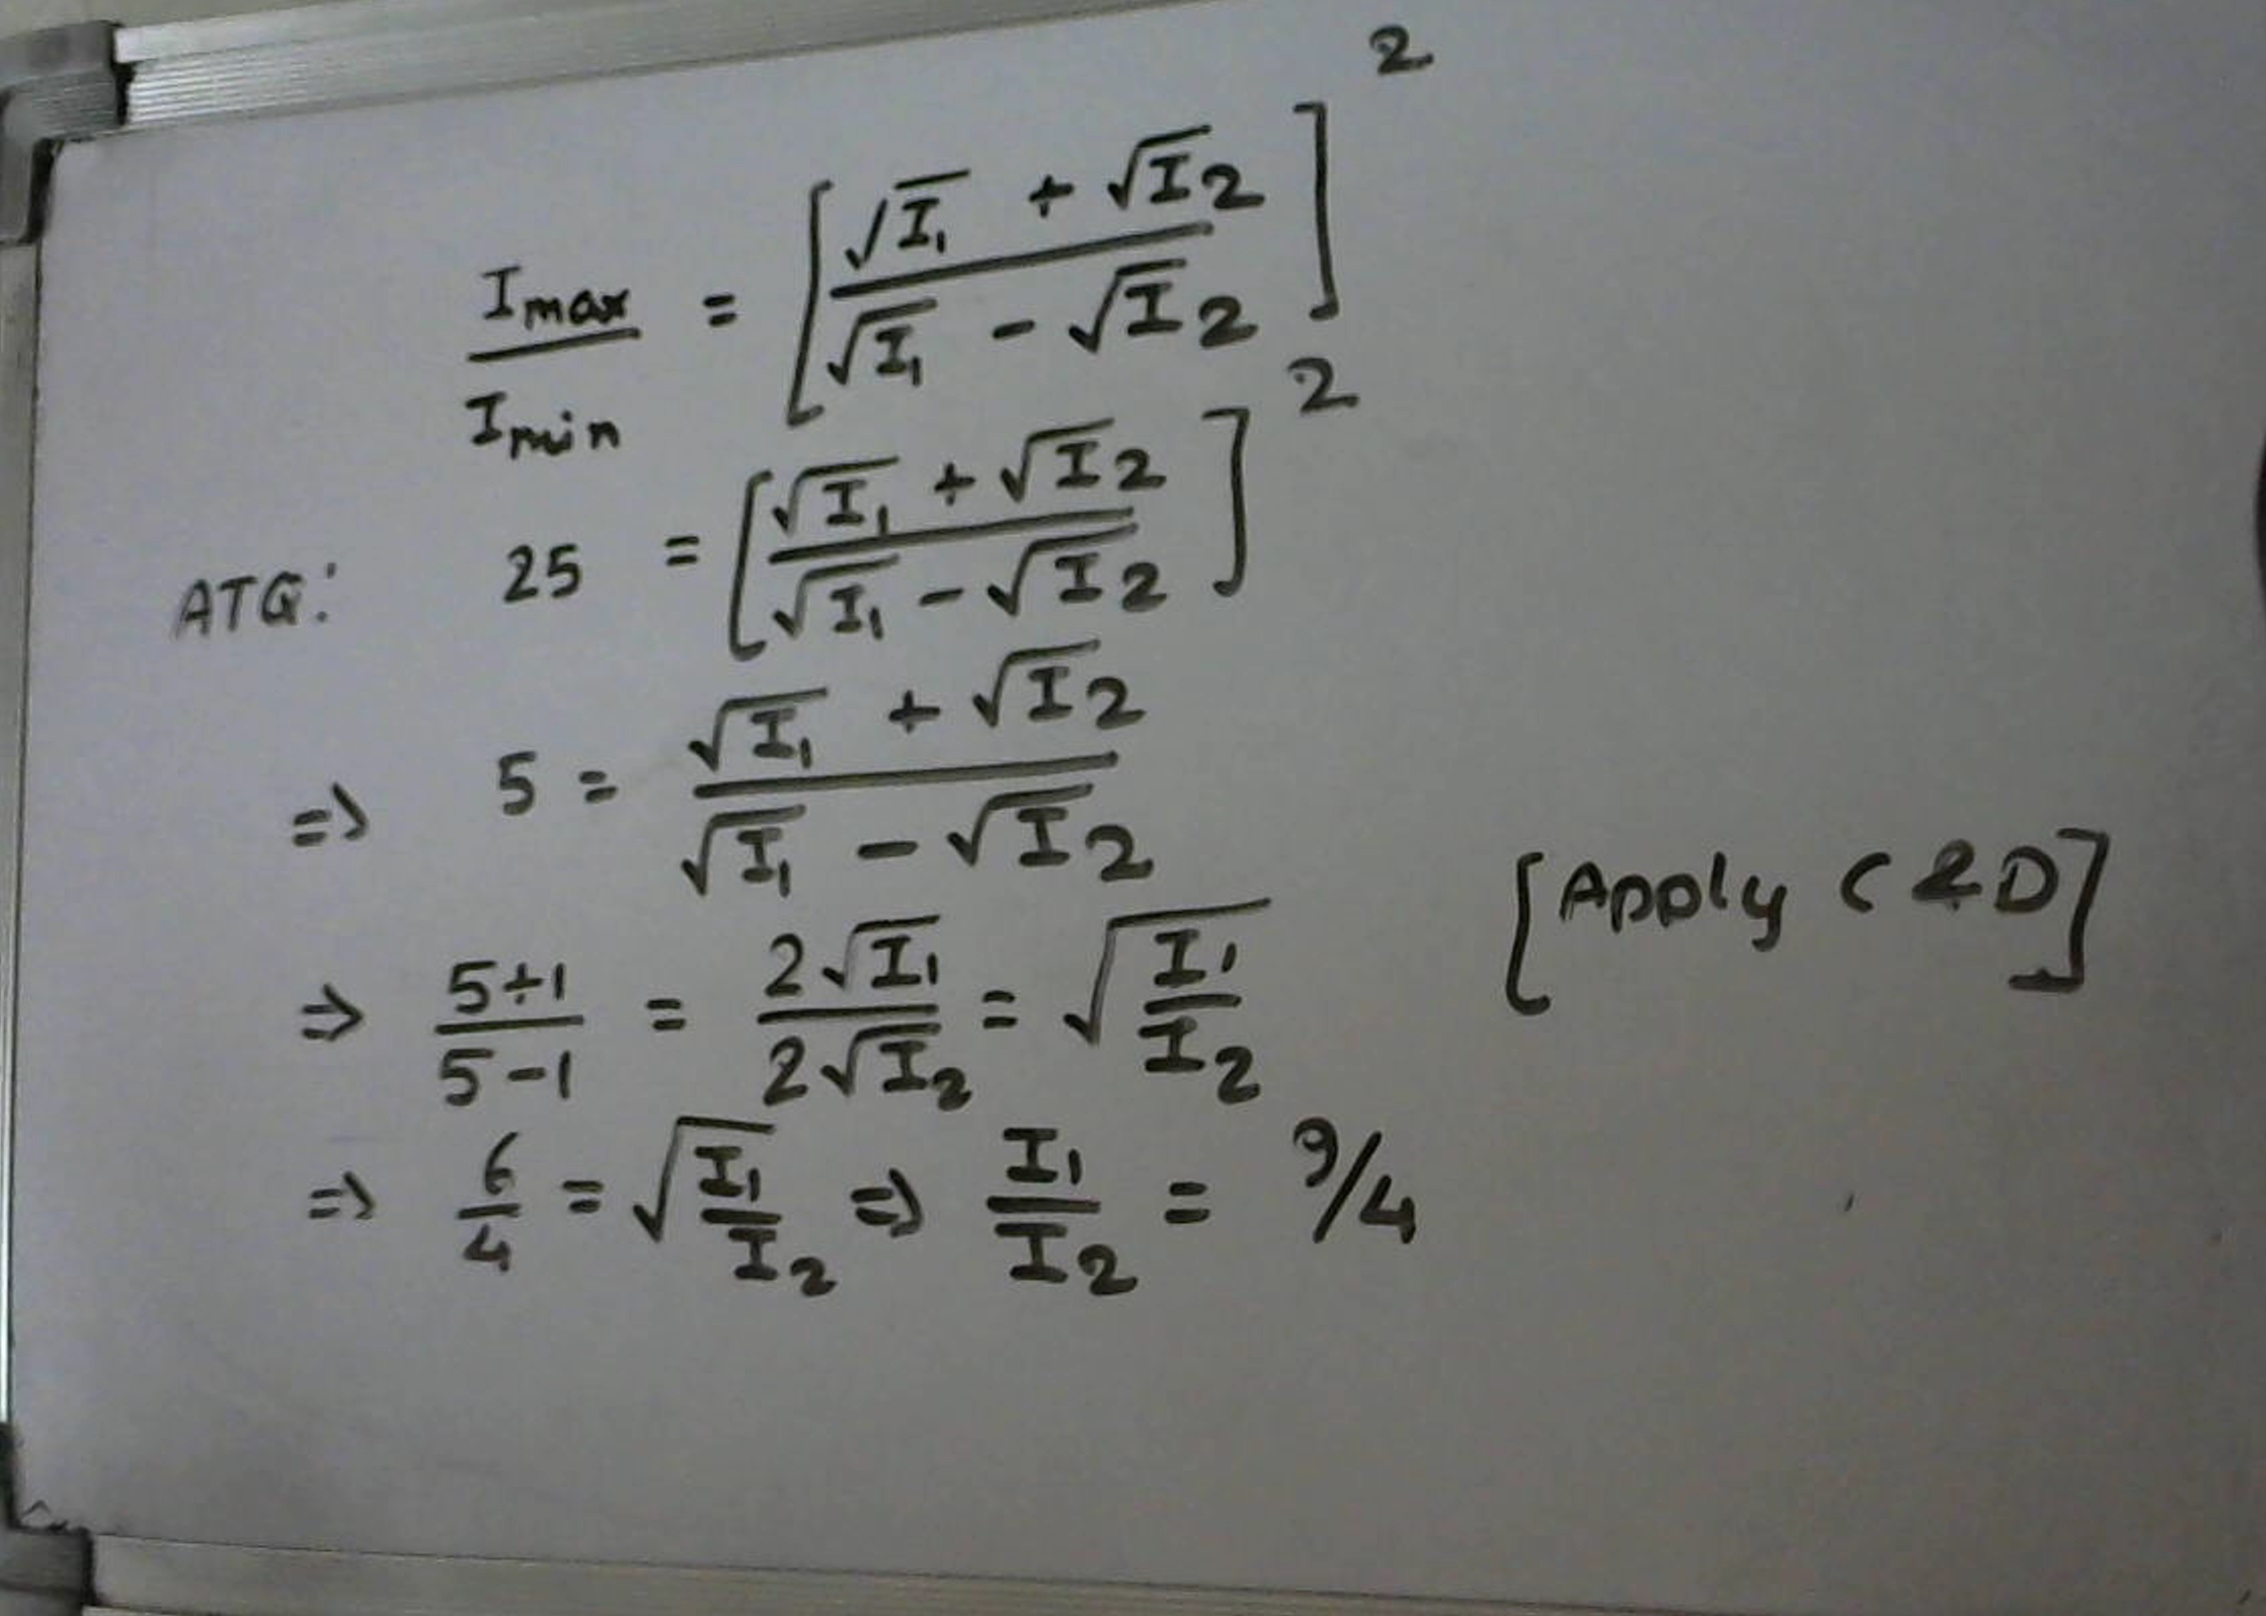 I max / I min = [ (√I₁ + √I₂) / (√I₁ - √I₂) ]²
ATQ: 25 = [ (√I₁ + √I₂) / (√I₁ - √I₂) ]²
=> 5 = (√I₁ + √I₂) / (√I₁ - √I₂)
[Apply C & D]
=> (5+1) / (5-1) = 2√I₁ / 2√I₂ = √(I₁ / I₂)
=> 6/4 = √(I₁ / I₂) => I₁ / I₂ = 9/4